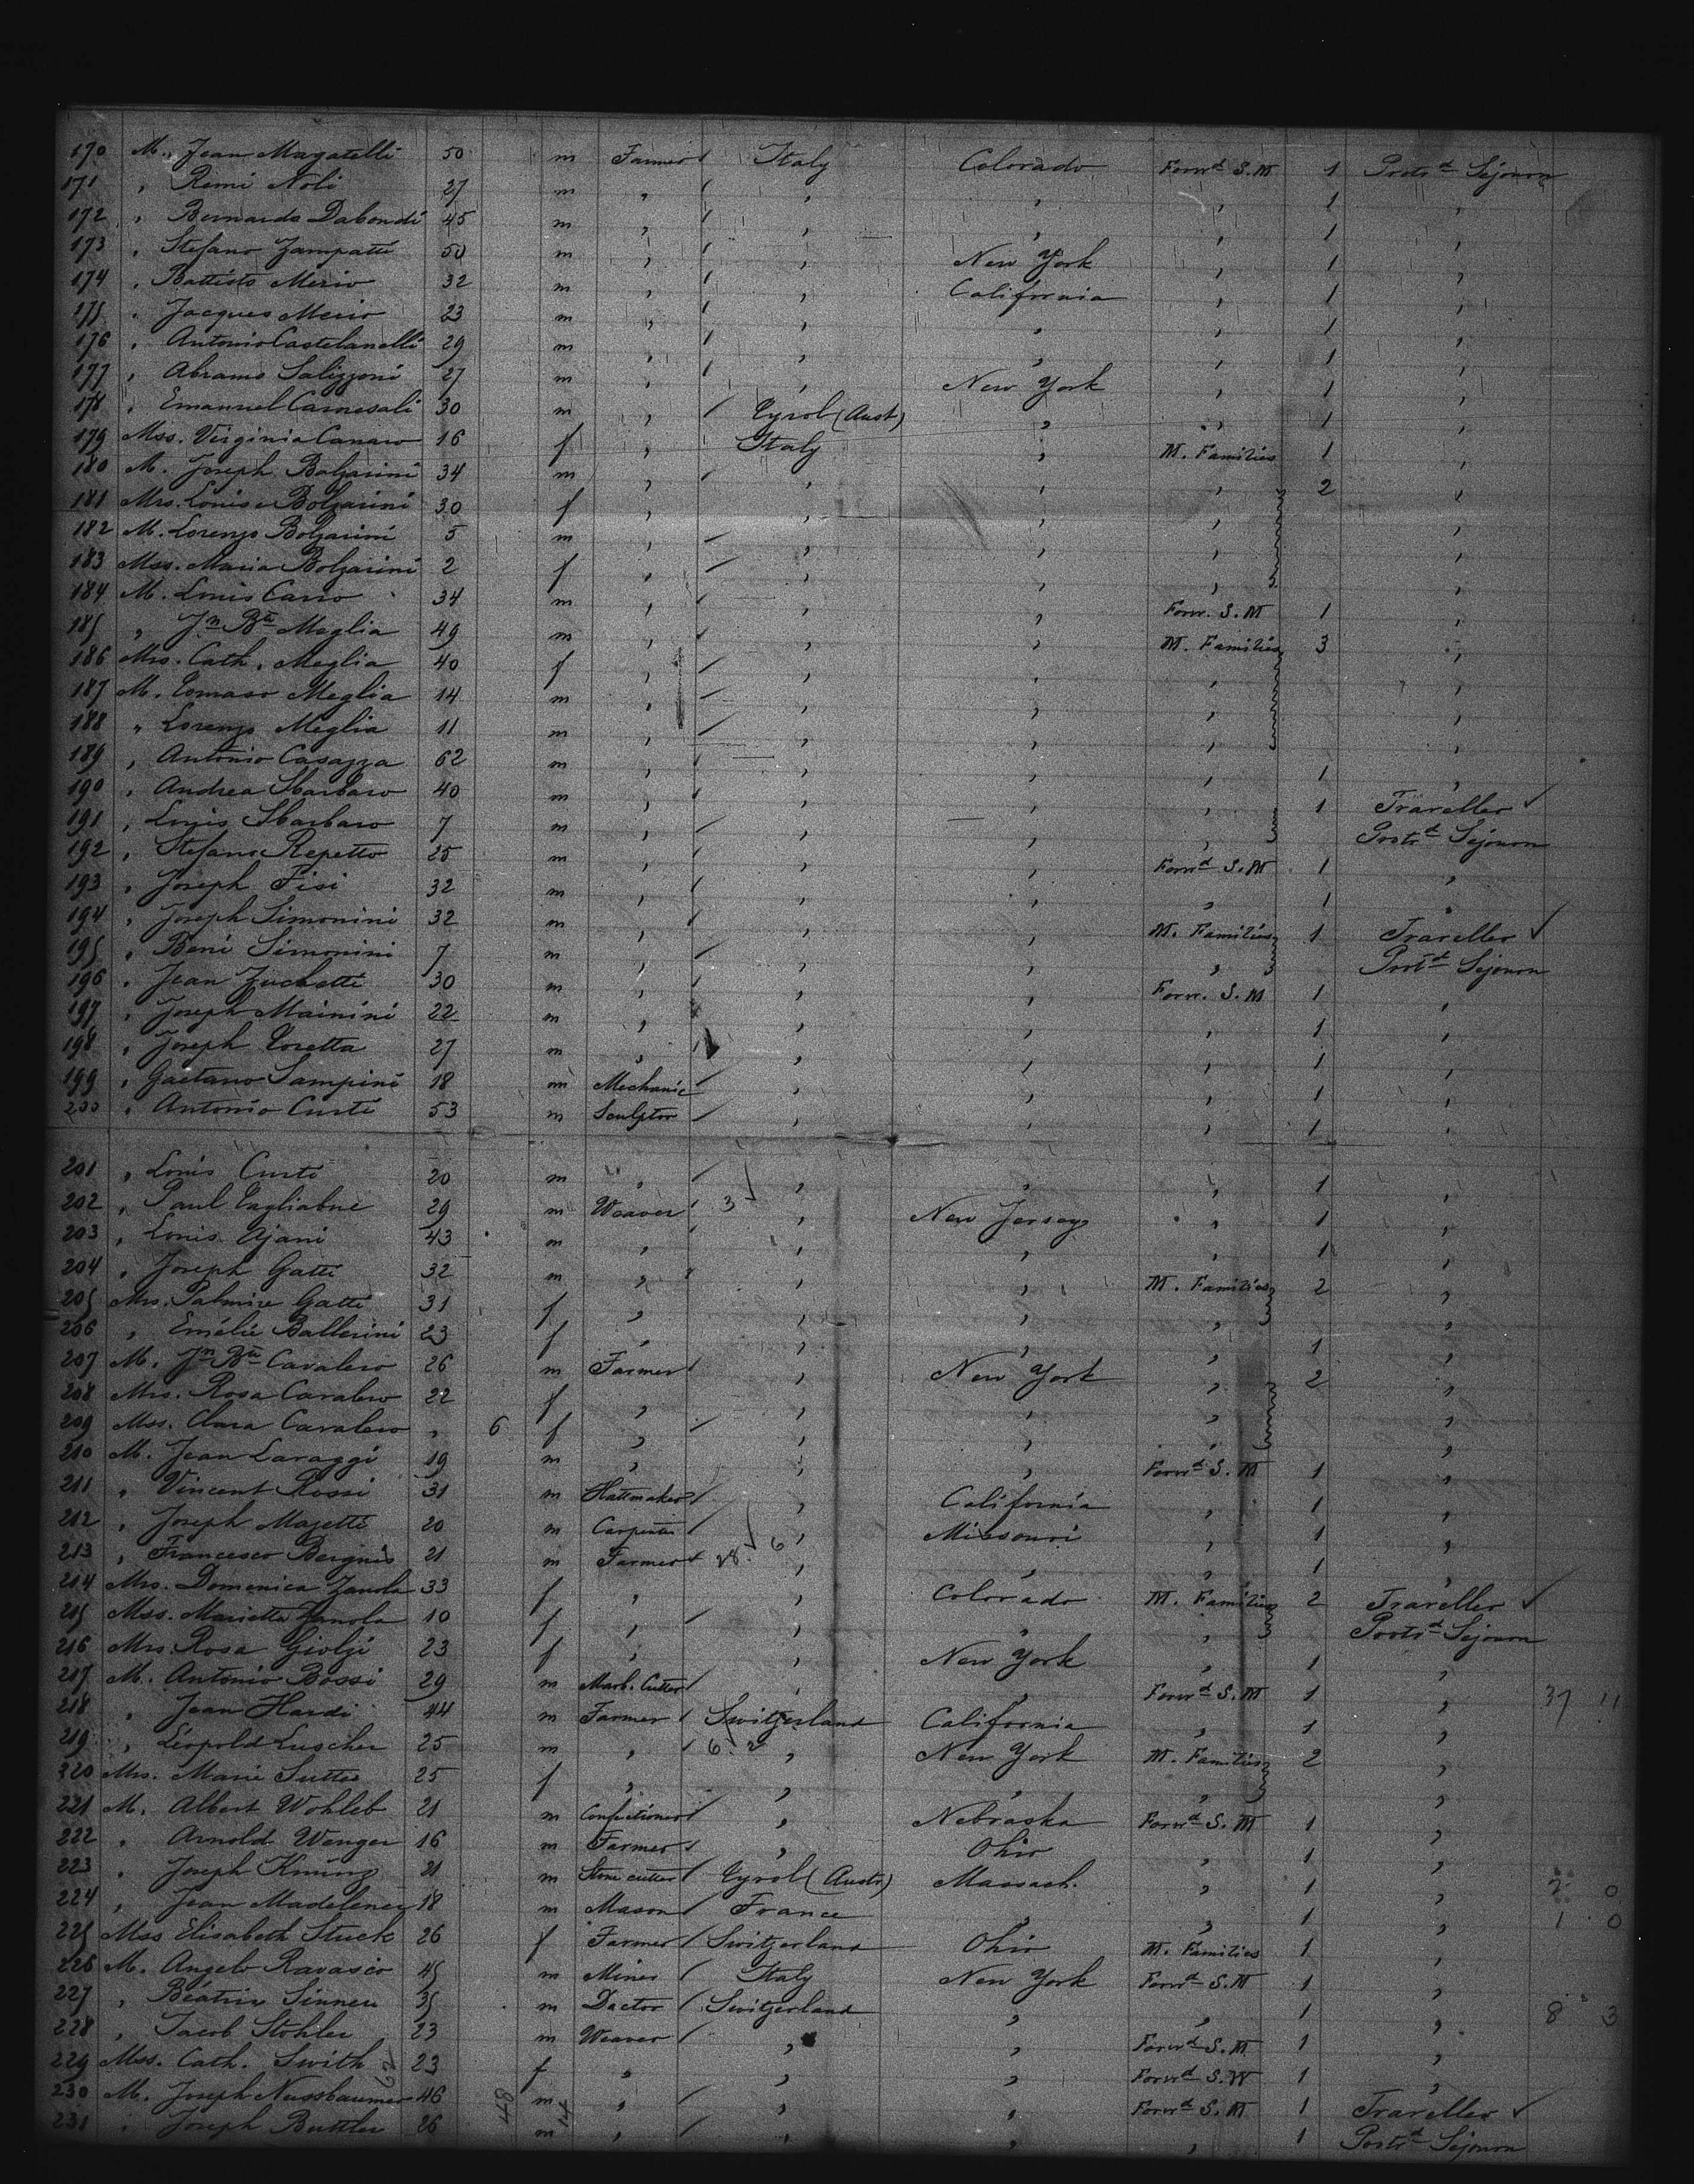 170 M. Jean Magatelli 50 m Farmer / Italy Colorado Forwd S.M 1 Protrd Sejourn
171 , Remi Noli 27 m , / , , , 1 ,
172 , Bernardo Dabondi 45 m , / , , , 1 ,
173 , Stefano Zampatti 50 m , / , New York , 1 ,
174 , Battista Merio 32 m , / , California , 1 ,
175 , Jacques Merio 23 m , / , , , 1 ,
176 , Antonio Castelanelli 29 m , / , , , 1 ,
177 , Abramo Salizzoni 27 m , / , New York , 1 ,
178 , Emanuel Carnesali 30 m , / Tyrol (Aust) , , 1 ,
179 Mss. Virginia Canaro 16 f , Italy , M. Families 1 ,
180 M. Joseph Bolzarini 34 m , / , , , 2 ,
181 Mrs. Louise Bolzarini 30 f , , , , ,
182 M. Lorenzo Bolzarini 5 m , / , , , ,
183 Mss. Maria Bolzarini 2 f , / , , , ,
184 M. Louis Carro 34 m , / , , Forw. S.M 1 ,
185 , Jn Bte Meglia 49 m , / , , M. Families 3 ,
186 Mrs. Cath. Meglia 40 f , / , , , ,
187 M. Tomaso Meglia 14 m , / , , , ,
188 " Lorenzo Meglia 11 m , / , , , ,
189 , Antonio Casazza 62 m , / , , , 1 ,
190 , Andrea Sbarbaro 40 m , / , , , 1 Traveller ✓
191 , Louis Sbarbaro 7 m , / , , , Protrd Sejourn
192 , Stefano Repetto 25 m , / , , Forwd S.M 1 ,
193 , Joseph Fisi 32 m , / , , , 1 ,
194 , Joseph Simonini 32 m , / , , M. Families 1 Traveller ✓
195 , Beni Simonini 7 m , / , , , Protrd Sejourn
196 , Jean Zuchetti 30 m , / , , Forw. S.M 1 ,
197 , Joseph Mainini 22 m , / , , , 1 ,
198 , Joseph Toretta 27 m , / , , , 1 ,
199 , Gaetano Sampini 18 m Mechanic / , , , 1 ,
200 , Antonio Curti 53 m Sculptor / , , , 1 ,
201 , Louis Curti 20 m , / , , , 1 ,
202 , Paul Tagliabue 29 m Weaver / 3 , New Jersey , 1 ,
203 , Louis Ajani 43 m , / , , , 1 ,
204 , Joseph Gatti 32 m , / , , M. Families 2 ,
205 Mrs. Palmire Gatti 31 f , , , , ,
206 , Emélie Ballerini 23 f , , , , 1 ,
207 M. Jn Bte Cavalero 26 m Farmer / , New York , 2 ,
208 Mrs. Rosa Cavalero 22 f , , , , ,
209 Mss. Clara Cavalero , 6 f , / , , , ,
210 M. Jean Laraggi 19 m , , , Forwd S.M 1 ,
211 , Vincent Rossi 31 m Hattmaker / , California , 1 ,
212 , Joseph Mazetti 20 m Carpenter / , Missouri , 1 ,
213 , Francesco Bergnis 21 m Farmer / 28 6 , , , 1 ,
214 Mrs. Domenica Zanola 33 f , , Colorado M. Families 2 Traveller ✓
215 Mss. Marietta Zanola 10 f , / , , , Protrd Sejourn
216 Mrs. Rosa Giolzi 23 f , , New York , 1 ,
217 M. Antonio Bossi 29 m Marb. Cutter / , , Forwd S.M 1 , 37 11
218 , Jean Hardi 44 m Farmer / Switzerland California , 1 ,
219 , Léopold Luscher 25 m , / 6 2 , New York M. Families 2 ,
220 Mrs. Marie Sutter 25 f , , , , ,
221 M. Albert Wohleb 21 m Confectioner / , Nebraska Forwd S.M 1 ,
222 , Arnold Wenger 16 m Farmer / , Ohio , 1 ,
223 , Joseph 21 m Stone cutter / Tyrol (Austr) Massach. , 1 , 2 0
224 , Jean Madelener 18 m Mason / France , , 1 , 1 0
225 Mss Elisabeth Stuck 26 f Farmer / Switzerland Ohio M. Families 1 ,
226 M. Angelo Ravasio 45 m Miner / Italy New York Forwd S.M 1 ,
227 , Béatrix Sinner 35 m Doctor / Switzerland , , 1 , 8 3
228 , Jacob Stohler 23 m Weaver / , , Forwd S.M 1 ,
229 Mss. Cath. Swith 23 f , , , Forwd S.W 1 ,
230 M. Joseph Nussbaumer 46 m , / , , Forwd S.M 1 Traveller ✓
231 , Joseph Buttler 26 m , / , , , 1 Protrd Sejourn